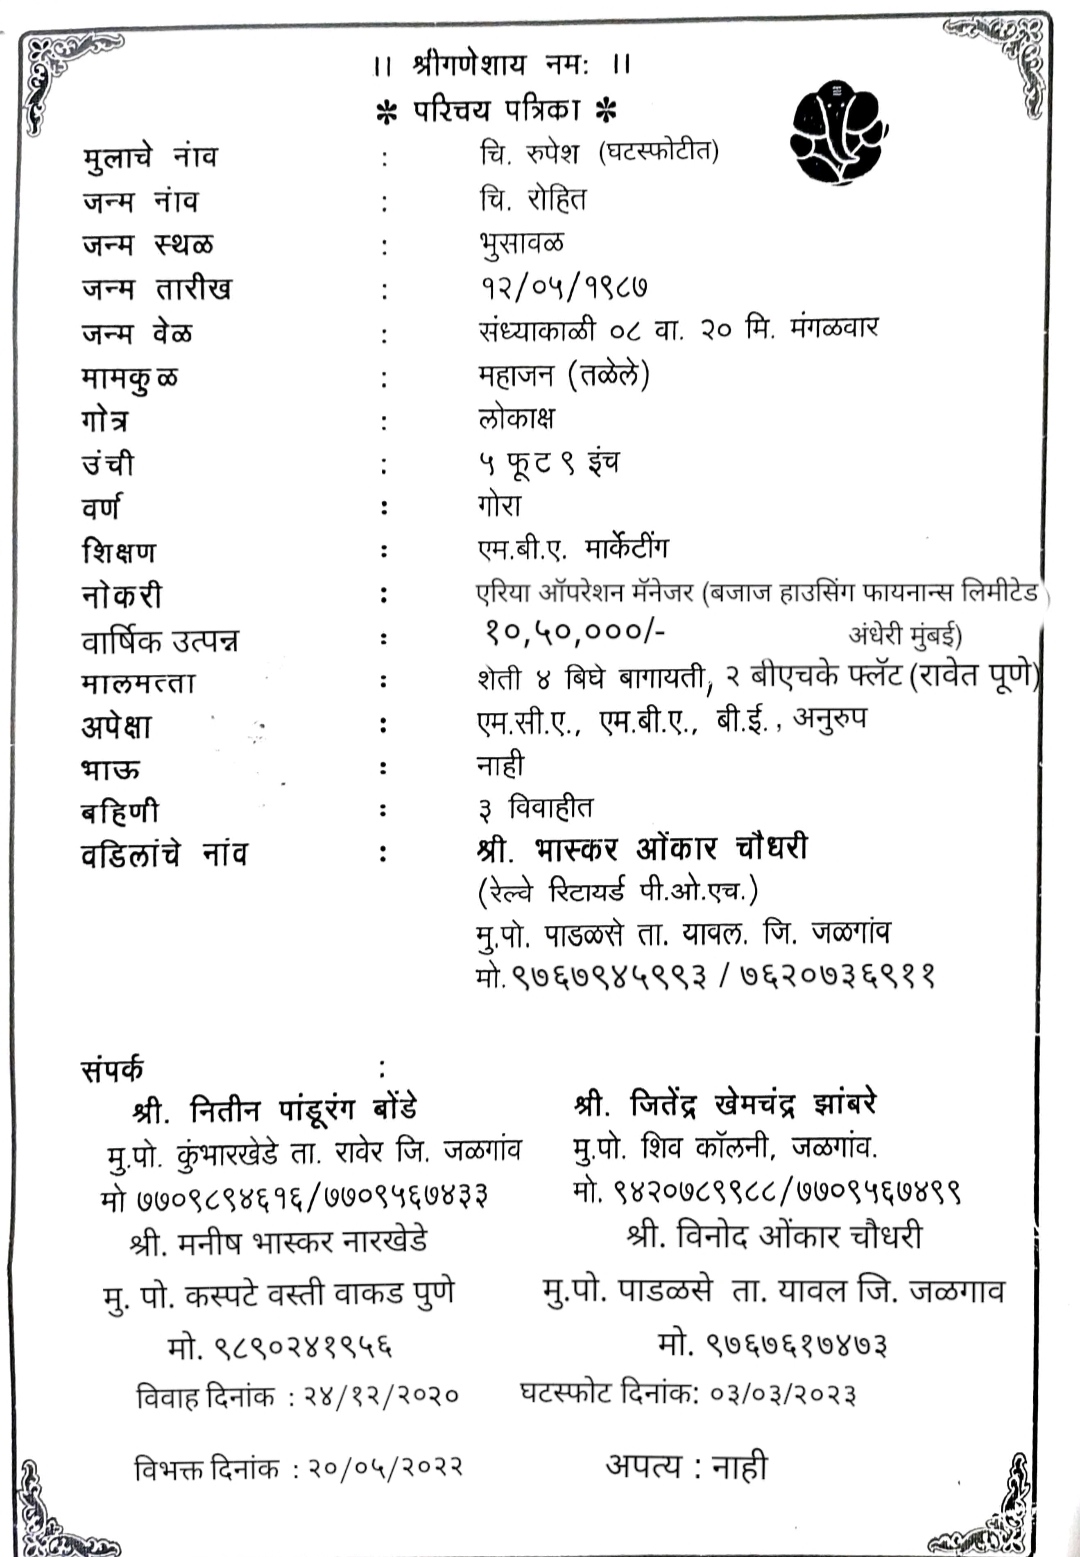 ।। श्रीगणेशाय नमः ।।
* परिचय पत्रिका *
मुलाचे नांव : चि. रुपेश (घटस्फोटीत)
जन्म नांव : चि. रोहित
जन्म स्थळ : भुसावळ
जन्म तारीख : १२/०५/१९८७
जन्म वेळ : संध्याकाळी ०८ वा. २० मि. मंगळवार
मामकुळ : महाजन (तळेले)
गोत्र : लोकाक्ष
उंची : ५ फूट ९ इंच
वर्ण : गोरा
शिक्षण : एम.बी.ए. मार्केटींग
नोकरी : एरिया ऑपरेशन मॅनेजर (बजाज हाउसिंग फायनान्स लिमीटेड
वार्षिक उत्पन्न : १०,५०,०००/- अंधेरी मुंबई)
मालमत्ता : शेती ४ बिघे बागायती, २ बीएचके फ्लॅट (रावेत पूणे)
अपेक्षा : एम.सी.ए., एम.बी.ए., बी.ई., अनुरुप
भाऊ : नाही
बहिणी : ३ विवाहीत
वडिलांचे नांव : श्री. भास्कर ओंकार चौधरी
(रेल्वे रिटायर्ड पी.ओ.एच.)
मु.पो. पाडळसे ता. यावल. जि. जळगांव
मो. ९७६७९४५९९३ / ७६२०७३६९११
संपर्क :
श्री. नितीन पांडूरंग बोंडे श्री. जितेंद्र खेमचंद्र झांबरे
मु.पो. कुंभारखेडे ता. रावेर जि. जळगांव मु.पो. शिव कॉलनी, जळगांव.
मो ७७०९८९४६१६/७७०९५६७४३३ मो. ९४२०७८९९८८/७७०९५६७४९९
श्री. मनीष भास्कर नारखेडे श्री. विनोद ओंकार चौधरी
मु. पो. कस्पटे वस्ती वाकड पुणे मु.पो. पाडळसे ता. यावल जि. जळगाव
मो. ९८९०२४१९५६ मो. ९७६७६१७४७३
विवाह दिनांक : २४/१२/२०२० घटस्फोट दिनांक: ०३/०३/२०२३
विभक्त दिनांक : २०/०५/२०२२ अपत्य : नाही